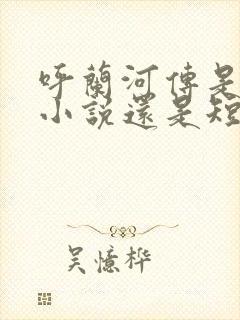 呼蘭河傳是
小說還是短
吳憶桦